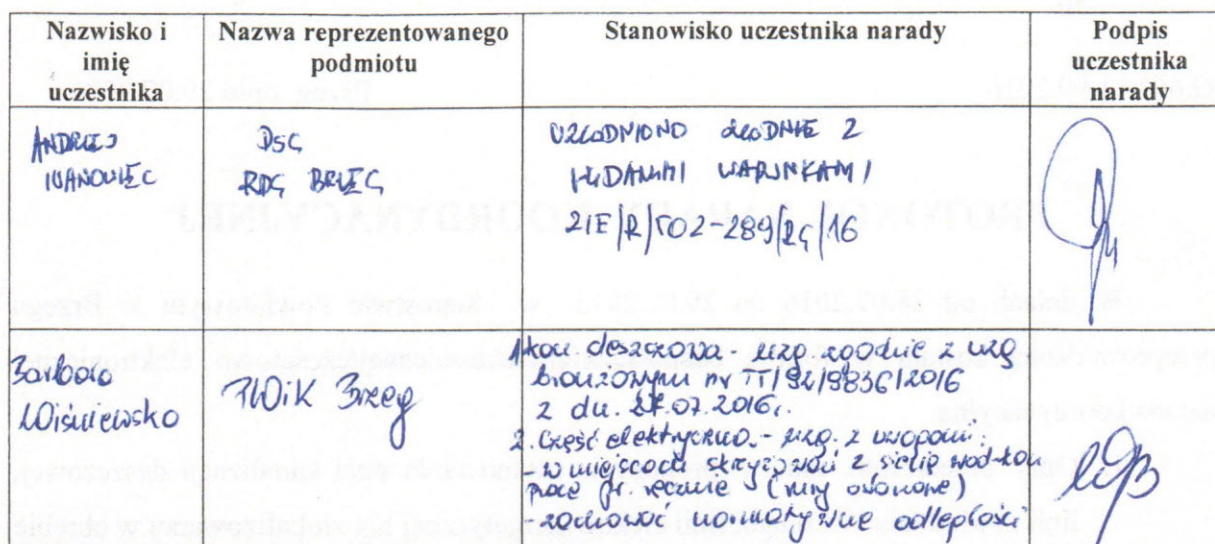 Nazwisko i imię uczestnika
Nazwa reprezentowanego podmiotu
Stanowisko uczestnika narady
Podpis uczestnika narady
ANDRZEJ
IWANOWIEC
DSG
RDG BRZEG
UZGODNIONO ZGODNIE Z
WYDANYMI WARUNKAMI
ZIE/R/TO2-289/RG/16
Barbara
Wiśniewska
PWiK Brzeg
1. kan. deszczowa uzg. zgodnie z uzg
branżowym nr TT/92/9836/2016
z dn. 27.07.2016.
2. Część elektryczna - uzg. z uwagami:
- w miejscach skrzyżowań z siecią wod-kan
prace pr. ręcznie (rury osłonowe)
- zachować normatywne odległości